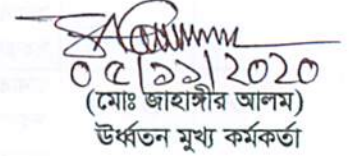 ০৫|১১|২০২০
(মোঃ জাহাঙ্গীর আলম)
উর্ধ্বতন মুখ্য কর্মকর্তা